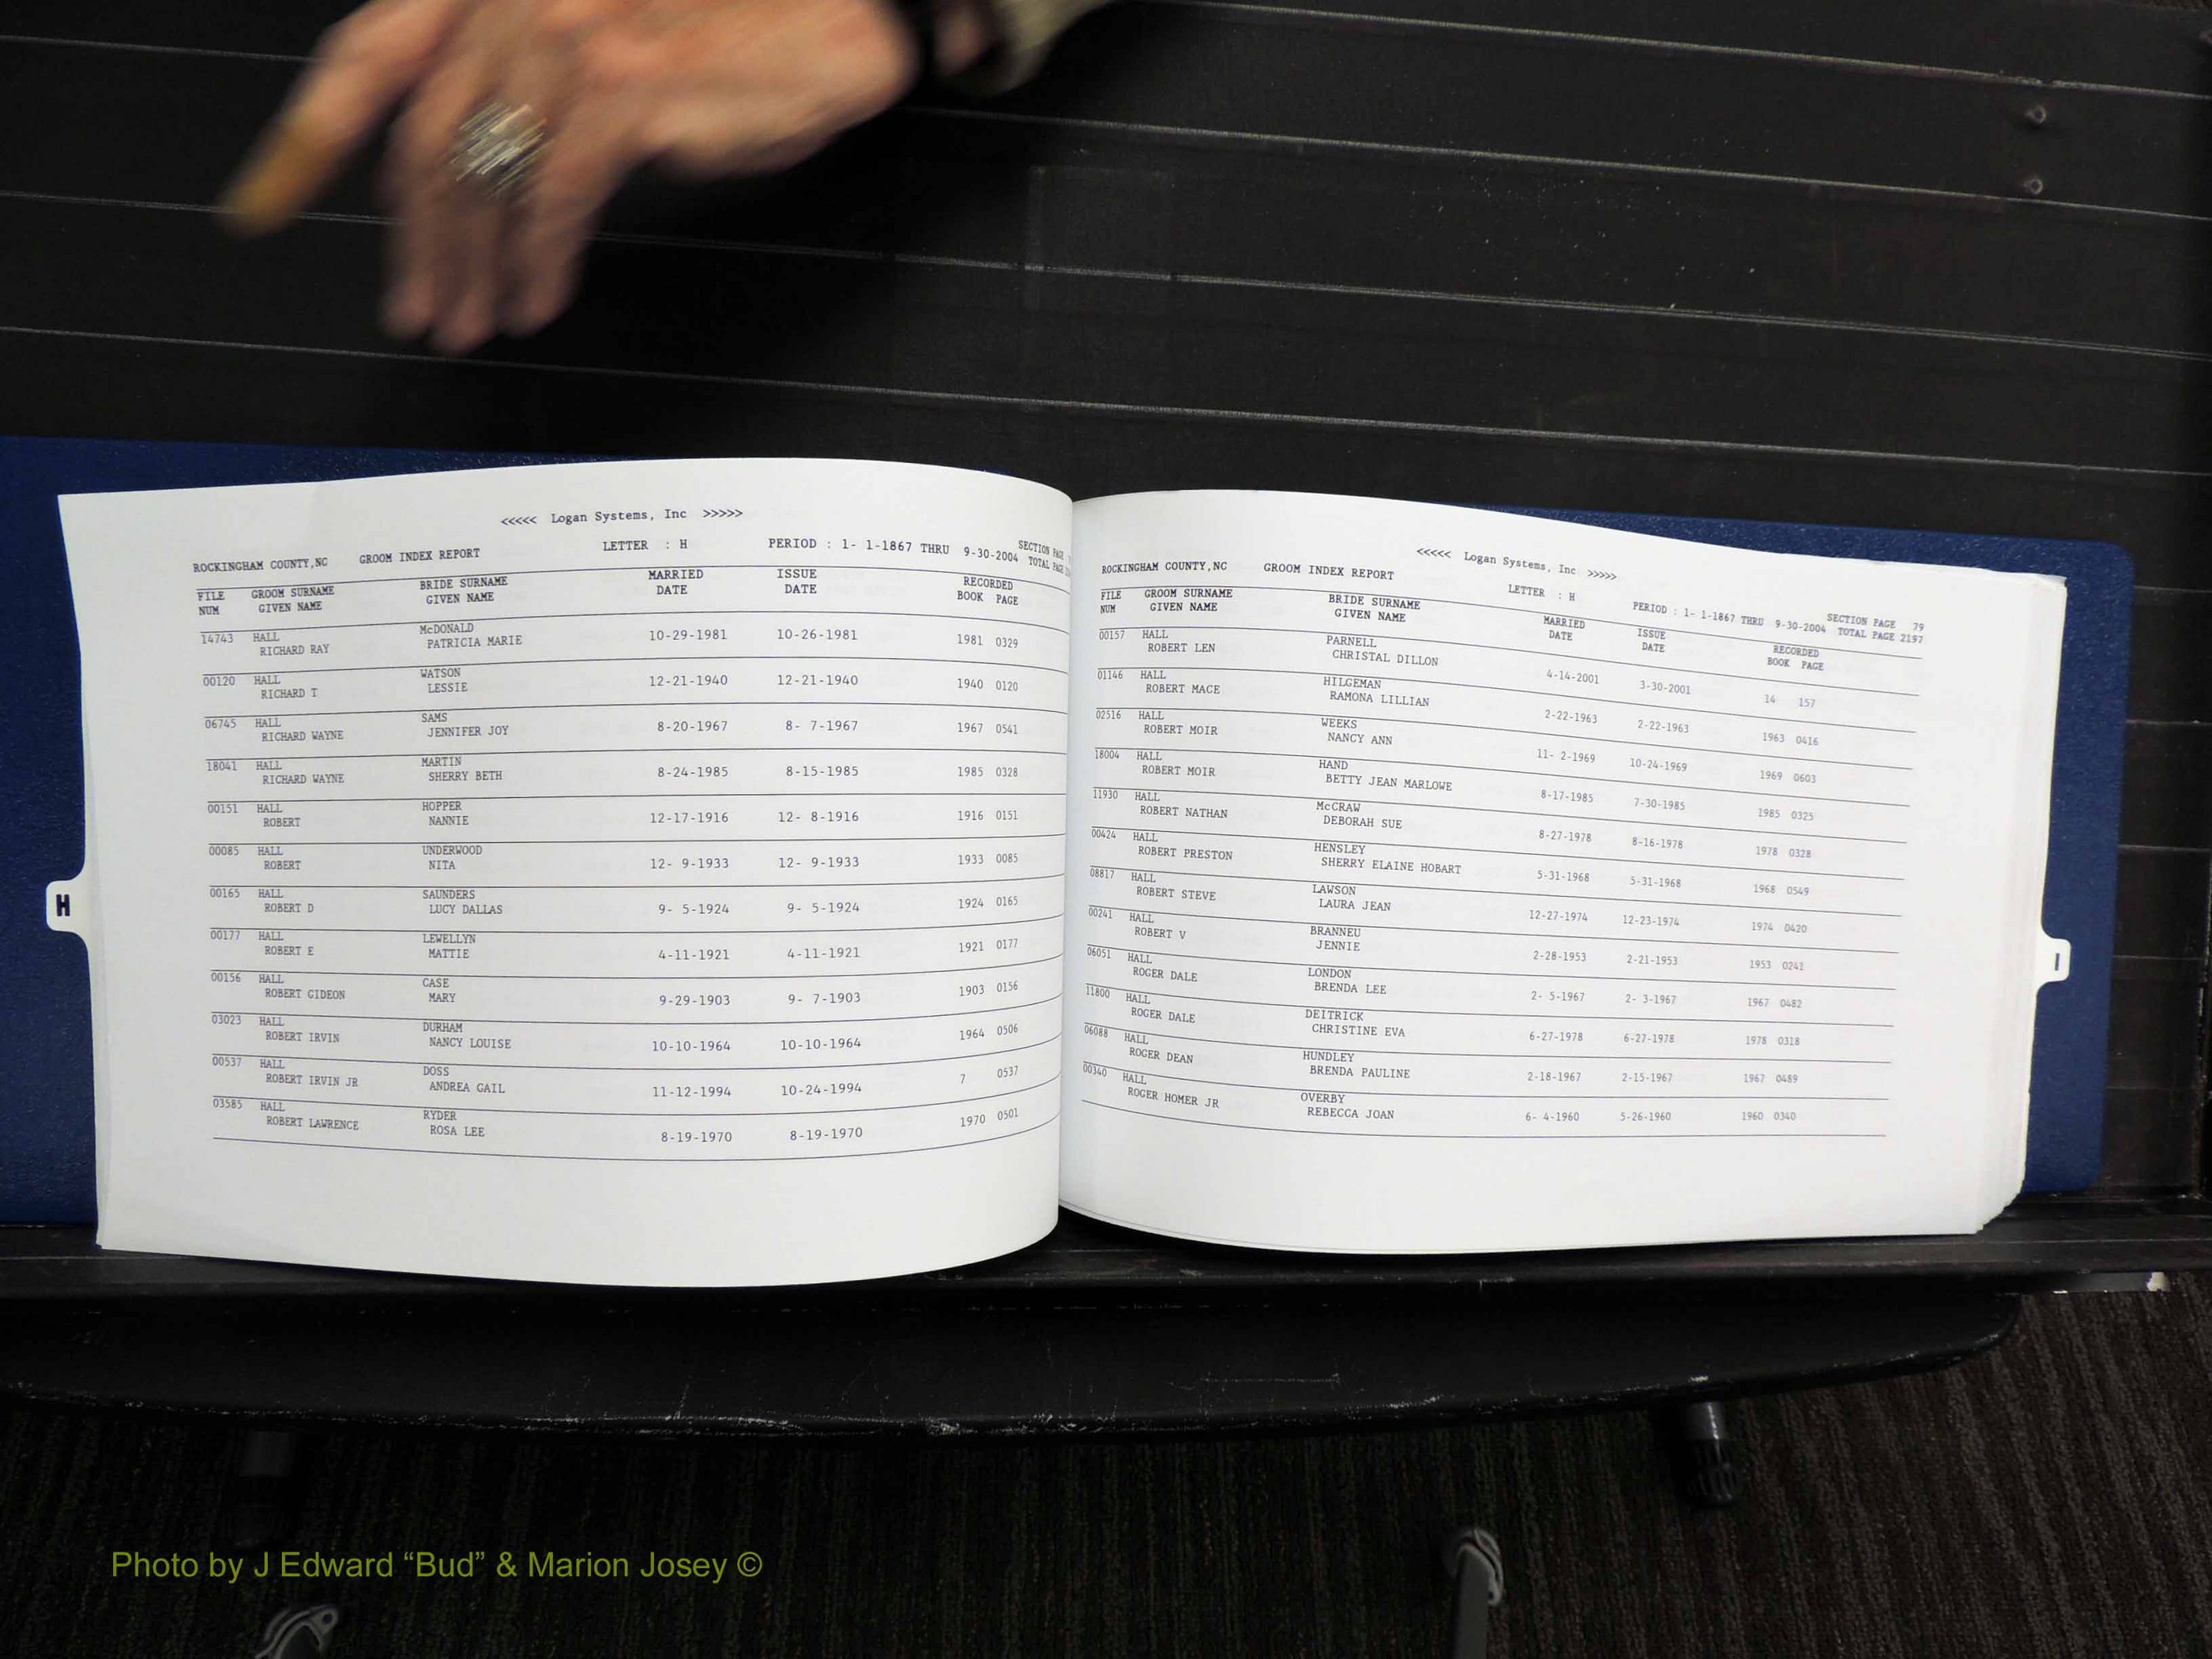 <<<<< Logan Systems, Inc >>>>>
ROCKINGHAM COUNTY,NC GROOM INDEX REPORT LETTER : H PERIOD : 1- 1-1867 THRU 9-30-2004 SECTION PAGE
TOTAL PAGE
FILE GROOM SURNAME BRIDE SURNAME MARRIED ISSUE RECORDED
NUM GIVEN NAME GIVEN NAME DATE DATE BOOK PAGE
14743 HALL McDONALD 10-29-1981 10-26-1981 1981 0329
RICHARD RAY PATRICIA MARIE
00120 HALL WATSON 12-21-1940 12-21-1940 1940 0120
RICHARD T LESSIE
06745 HALL SAMS 8-20-1967 8- 7-1967 1967 0541
RICHARD WAYNE JENNIFER JOY
18041 HALL MARTIN 8-24-1985 8-15-1985 1985 0328
RICHARD WAYNE SHERRY BETH
00151 HALL HOPPER 12-17-1916 12- 8-1916 1916 0151
ROBERT NANNIE
00085 HALL UNDERWOOD 12- 9-1933 12- 9-1933 1933 0085
ROBERT NITA
00165 HALL SAUNDERS 9- 5-1924 9- 5-1924 1924 0165
ROBERT D LUCY DALLAS
00177 HALL LEWELLYN 4-11-1921 4-11-1921 1921 0177
ROBERT E MATTIE
00156 HALL CASE 9-29-1903 9- 7-1903 1903 0156
ROBERT GIDEON MARY
03023 HALL DURHAM 10-10-1964 10-10-1964 1964 0506
ROBERT IRVIN NANCY LOUISE
00537 HALL DOSS 11-12-1994 10-24-1994 7 0537
ROBERT IRVIN JR ANDREA GAIL
03585 HALL RYDER 8-19-1970 8-19-1970 1970 0501
ROBERT LAWRENCE ROSA LEE
H
<<<<< Logan Systems, Inc >>>>>
ROCKINGHAM COUNTY,NC GROOM INDEX REPORT LETTER : H PERIOD : 1- 1-1867 THRU 9-30-2004 SECTION PAGE 79
TOTAL PAGE 2197
FILE GROOM SURNAME BRIDE SURNAME MARRIED ISSUE RECORDED
NUM GIVEN NAME GIVEN NAME DATE DATE BOOK PAGE
00157 HALL PARNELL 4-14-2001 3-30-2001 14 157
ROBERT LEN CHRISTAL DILLON
01146 HALL HILGEMAN 2-22-1963 2-22-1963 1963 0416
ROBERT MACE RAMONA LILLIAN
02516 HALL WEEKS 11- 2-1969 10-24-1969 1969 0603
ROBERT MOIR NANCY ANN
18004 HALL HAND 8-17-1985 7-30-1985 1985 0325
ROBERT MOIR BETTY JEAN MARLOWE
11930 HALL McCRAW 8-27-1978 8-16-1978 1978 0328
ROBERT NATHAN DEBORAH SUE
00424 HALL HENSLEY 5-31-1968 5-31-1968 1968 0549
ROBERT PRESTON SHERRY ELAINE HOBART
08817 HALL LAWSON 12-27-1974 12-23-1974 1974 0420
ROBERT STEVE LAURA JEAN
00241 HALL BRANNEU 2-28-1953 2-21-1953 1953 0241
ROBERT V JENNIE
06051 HALL LONDON 2- 5-1967 2- 3-1967 1967 0482
ROGER DALE BRENDA LEE
11800 HALL DEITRICK 6-27-1978 6-27-1978 1978 0318
ROGER DALE CHRISTINE EVA
06088 HALL HUNDLEY 2-18-1967 2-15-1967 1967 0489
ROGER DEAN BRENDA PAULINE
00340 HALL OVERBY 6- 4-1960 5-26-1960 1960 0340
ROGER HOMER JR REBECCA JOAN
I
Photo by J Edward “Bud” & Marion Josey ©